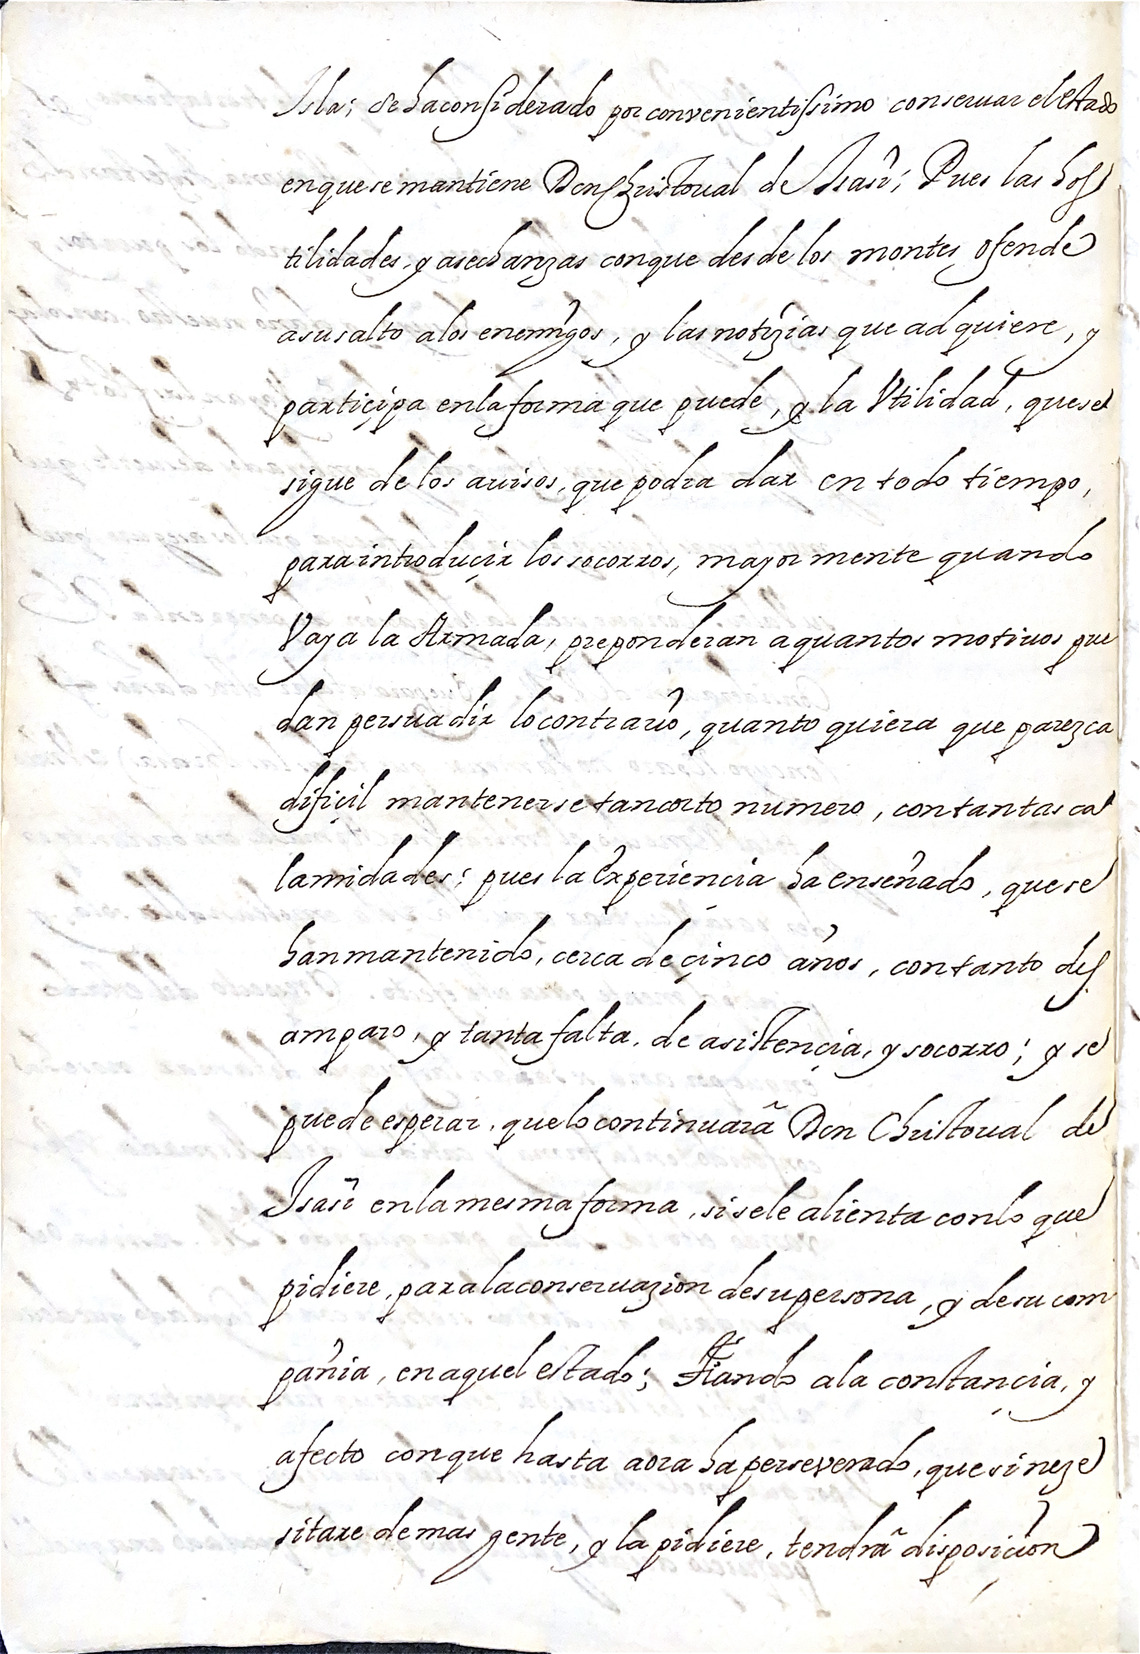 Isla; se ha considerado por convenientissimo conseruar el estado
en que se mantiene Don Christoual de Isasi; Pues las hos
tilidades, y asechanzas con que desde los montes ofende
a su salto a los enemigos, y las notizias que adquiere, y
participa en la forma que puede, y la Vtilidad, que se
sigue de los auisos, que podra dar en todo tiempo,
para introduçir los socorros, mayormente quando
Vaya la Armada, preponderan a quantos motiuos pue
dan persuadir lo contrario, quanto quiera que parezca
difiçil mantenerse tan corto numero, con tantas ca
lamidades; pues la experiençia ha enseñado, que se
han mantenido, cerca de çinco años, con tanto des
amparo, y tanta falta, de asistençia, y socorro; y se
puede esperar, que lo continuarà Don Christoual de
Isasi en la mesma forma, si se le alienta con lo que
pidiere, para la conseruazion de su persona, y de su com
pañia, en aquel estado; Fiando a la constançia, y
afecto con que hasta aora ha perseverado, que si neze
sitare de mas gente, y la pidiere, tendrà disposiçion